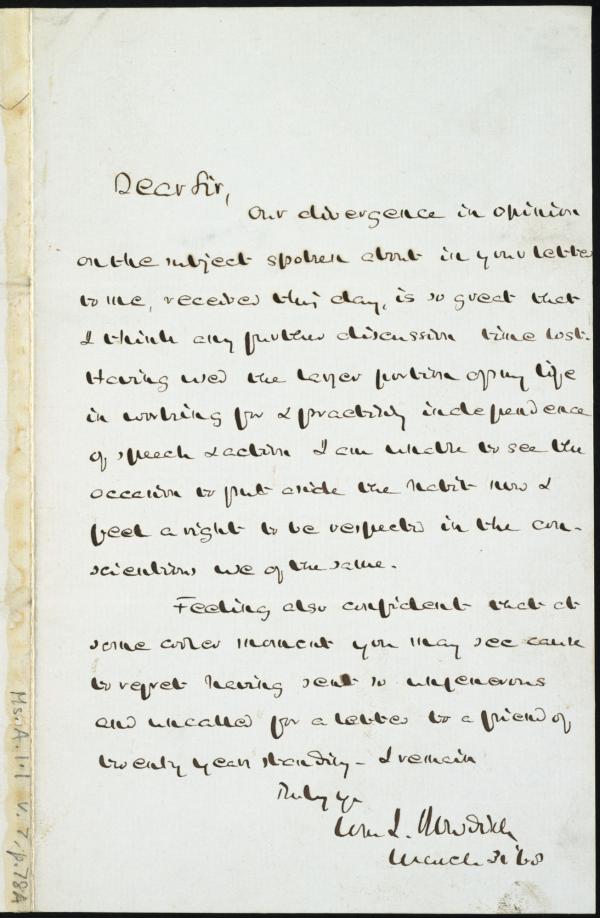 Dear Sir,
Our divergence in opinion
on the subject spoken about in your letter
to me, received this day, is so great that
I think any further discussion time lost.
Having used the larger portion of my life
in working for & practising independence
of speech & action I am unable to see the
occasion to put aside the habit now &
feel a right to be respected in the con-
scientious use of the same.
Feeling also confident that at
some cooler moment you may see cause
to regret having sent so ungenerous
and uncalled for a letter to a friend of
twenty years standing - I remain
Truly yr
Wm L.
March 31 '68
Ms. A. 1.1 v. 7, p. 78A